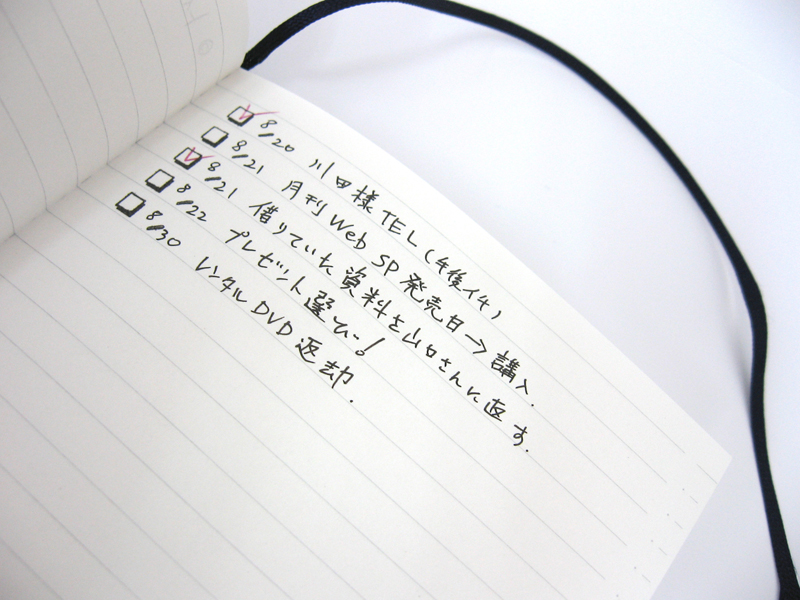 ☑ 8/20 川田様TEL(午後イチ)
☐ 8/21 月刊Web SP発売日→購入.
☑ 8/21 借りていた資料を山口さんに返す.
☐ 8/22 プレゼント選び!
☐ 8/30 レンタルDVD返却.